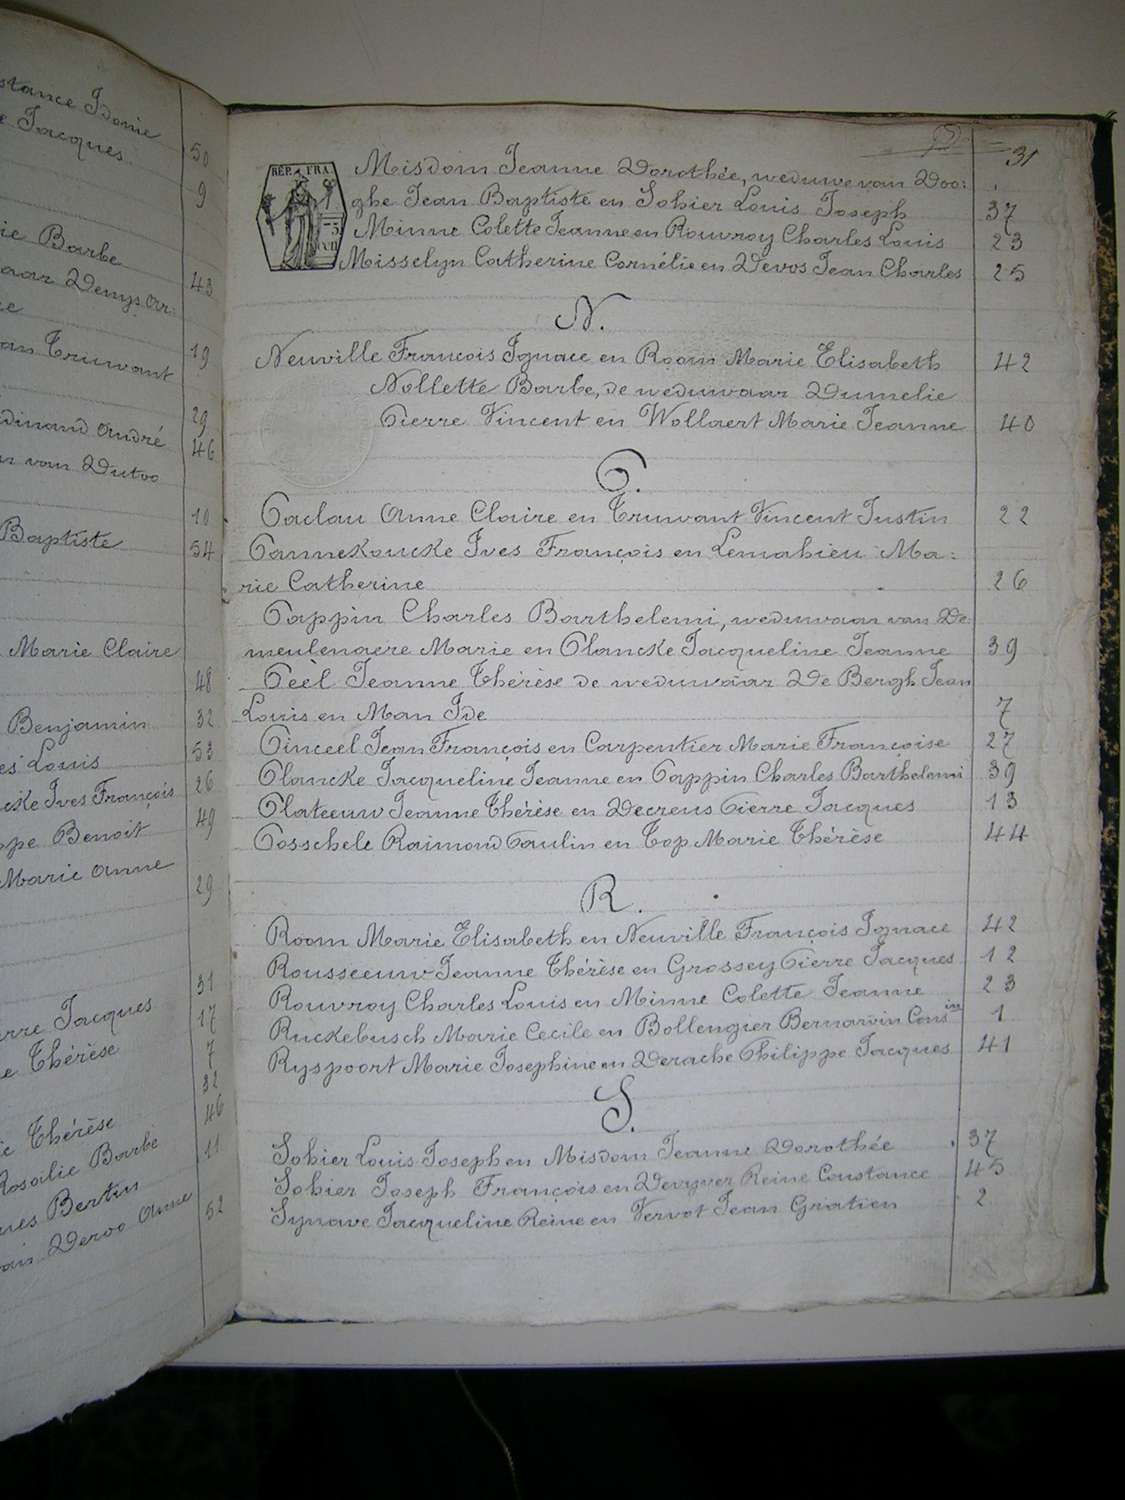 stance Idonie
e Jacques 50
9
ie Barbe
aar Denys Ar: 43
e
an Truwant 19
29
dinand André 46
r van Dutoo
10
Baptiste 54
Marie Claire
48
Benjamin 32
es Louis 53
cke Ives François 26
ppe Benoit 49
Marie Anne
29
31
erre Jacques 17
e Thérèse 7
32
46
ie Thérèse
Rosalie Barbe 11
ues Bertin
ois Devoo Anne 52
31
RÉP. FRA.
Misdom Jeanne Dorothée, weduwe van Doo:
ghe Jean Baptiste en Sohier Louis Joseph 37
Minne Colette Jeanne en Rouvroy Charles Louis 23
Misselyn Catherine Cornélie en Devos Jean Charles 25
N.
Neuville François Ignace en Room Marie Elisabeth 42
Nollette Barbe, de weduwaar Dumelie
Pierre Vincent en Wollaert Marie Jeanne 40
P.
Paclau Anne Claire en Truwant Vincent Justin 22
Pannekoucke Ives François en Lemahieu Ma:
rie Catherine 26
Pappin Charles Barthelemi, weduwaar van De:
meulenaere Marie en Plancke Jacqueline Jeanne 39
Péel Jeanne Thérèse de weduwaar De Bergh Jean
Louis en Man Ide 7
Pinceel Jean François en Carpentier Marie Françoise 27
Plancke Jacqueline Jeanne en Pappin Charles Barthelemi 39
Plateeuw Jeanne Thérèse en Decreus Pierre Jacques 13
Posschele Raimond Paulin en Top Marie Thérèse 44
R.
Room Marie Elisabeth en Neuville François Ignace 42
Rousseeuw Jeanne Thérèse en Grossey Pierre Jacques 12
Rouvroy Charles Louis en Minne Colette Jeanne 23
Ruckebusch Marie Cecile en Bollengier Bernardin Cons.in 1
Ryspoort Marie Josephine en Derache Philippe Jacques 41
S.
Sohier Louis Joseph en Misdom Jeanne Dorothée 37
Sohier Joseph François en Devyver Reine Constance 45
Synave Jacqueline Reine en Vervot Jean Gratien 2